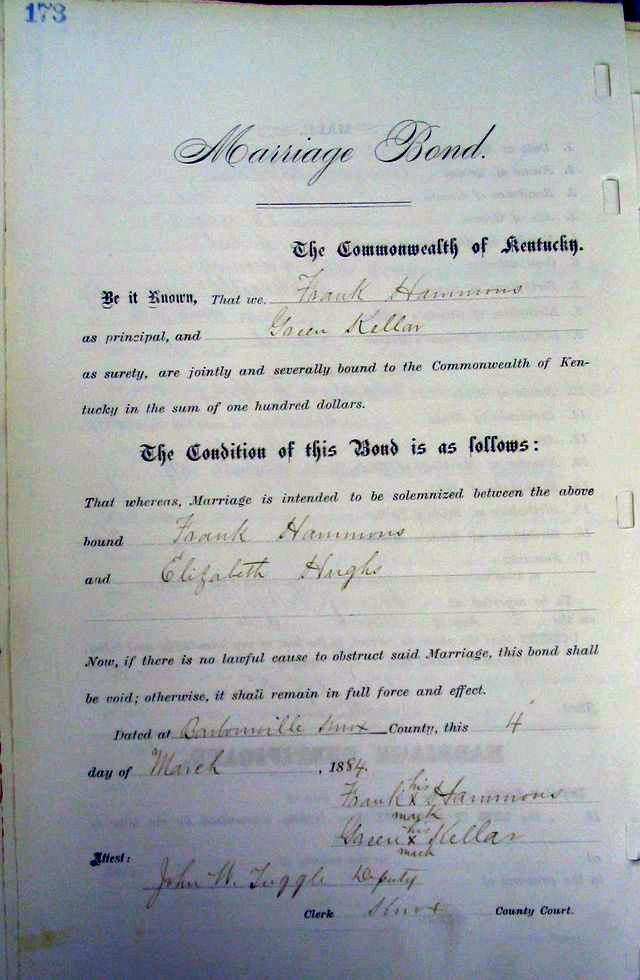 173
Marriage Bond.
The Commonwealth of Kentucky.
Be it Known, That we. Frank Hammons
as principal, and Green Kellar
as surety, are jointly and severally bound to the Commonwealth of Ken-
tucky in the sum of one hundred dollars.
The Condition of this Bond is as follows:
That whereas, Marriage is intended to be solemnized between the above
bound Frank Hammons
and Elizabeth Hughs
Now, if there is no lawful cause to obstruct said Marriage, this bond shall
be void; otherwise, it shall remain in full force and effect.
Dated at Barbourville Knox County, this 4
day of March, 1884.
Frank his x mark Hammons
Green his x mark Kellar
Attest:
John W. Tuggle Deputy
Clerk Knox County Court.